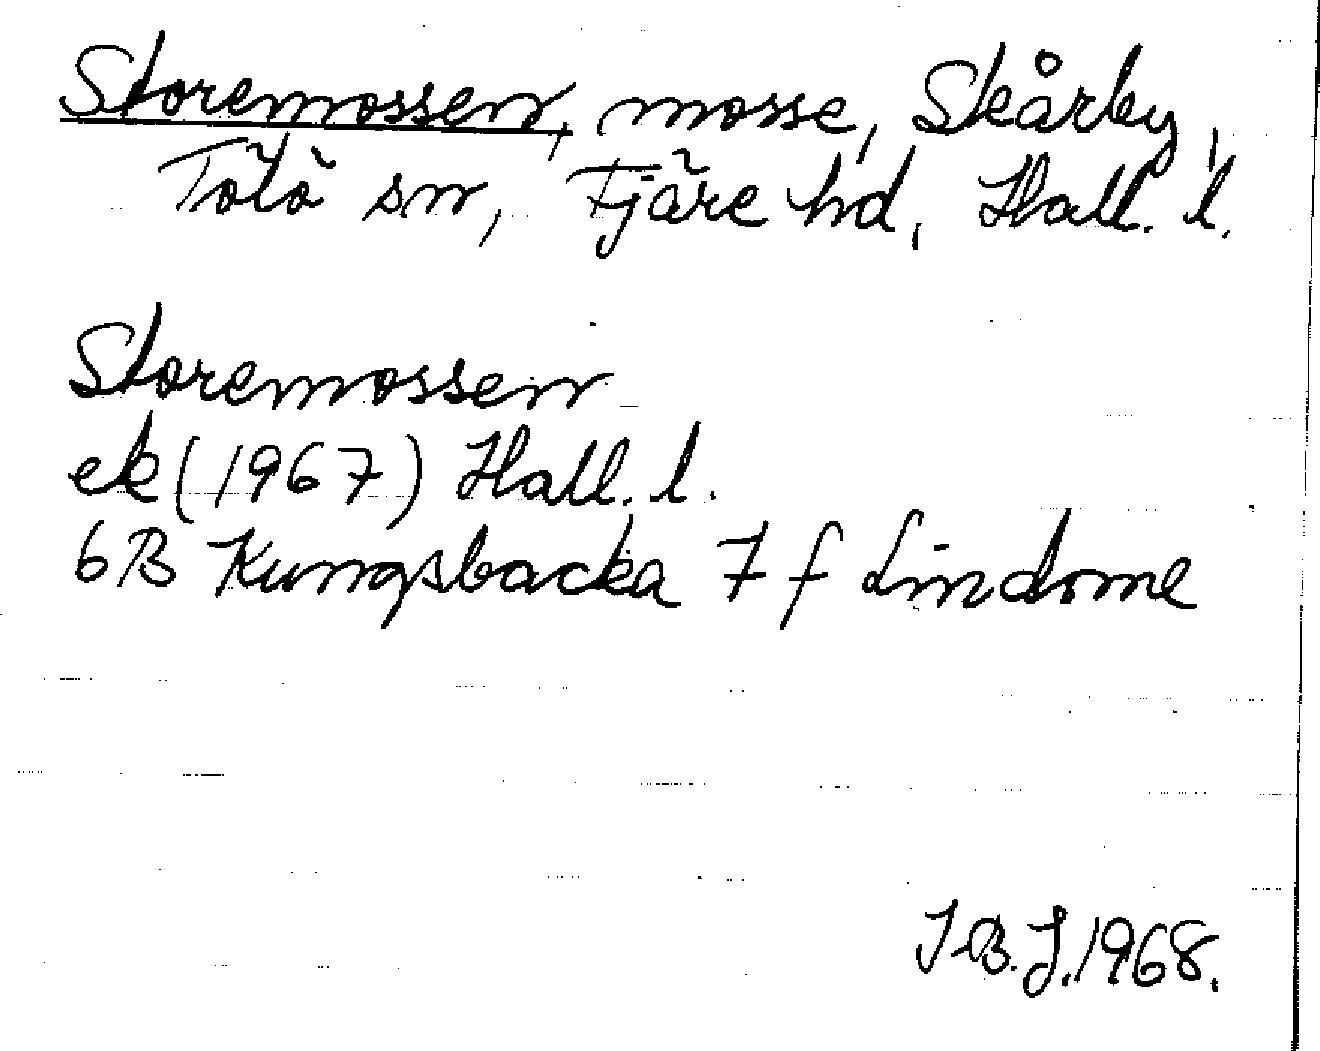 Storemossen, mosse, Skårby,
Tölö sn, Fjäre hd, Hall. l.
Storemossen
ek (1967) Hall. l.
6B Kungsbacka 7 f Lindome
I.B.J. 1968.